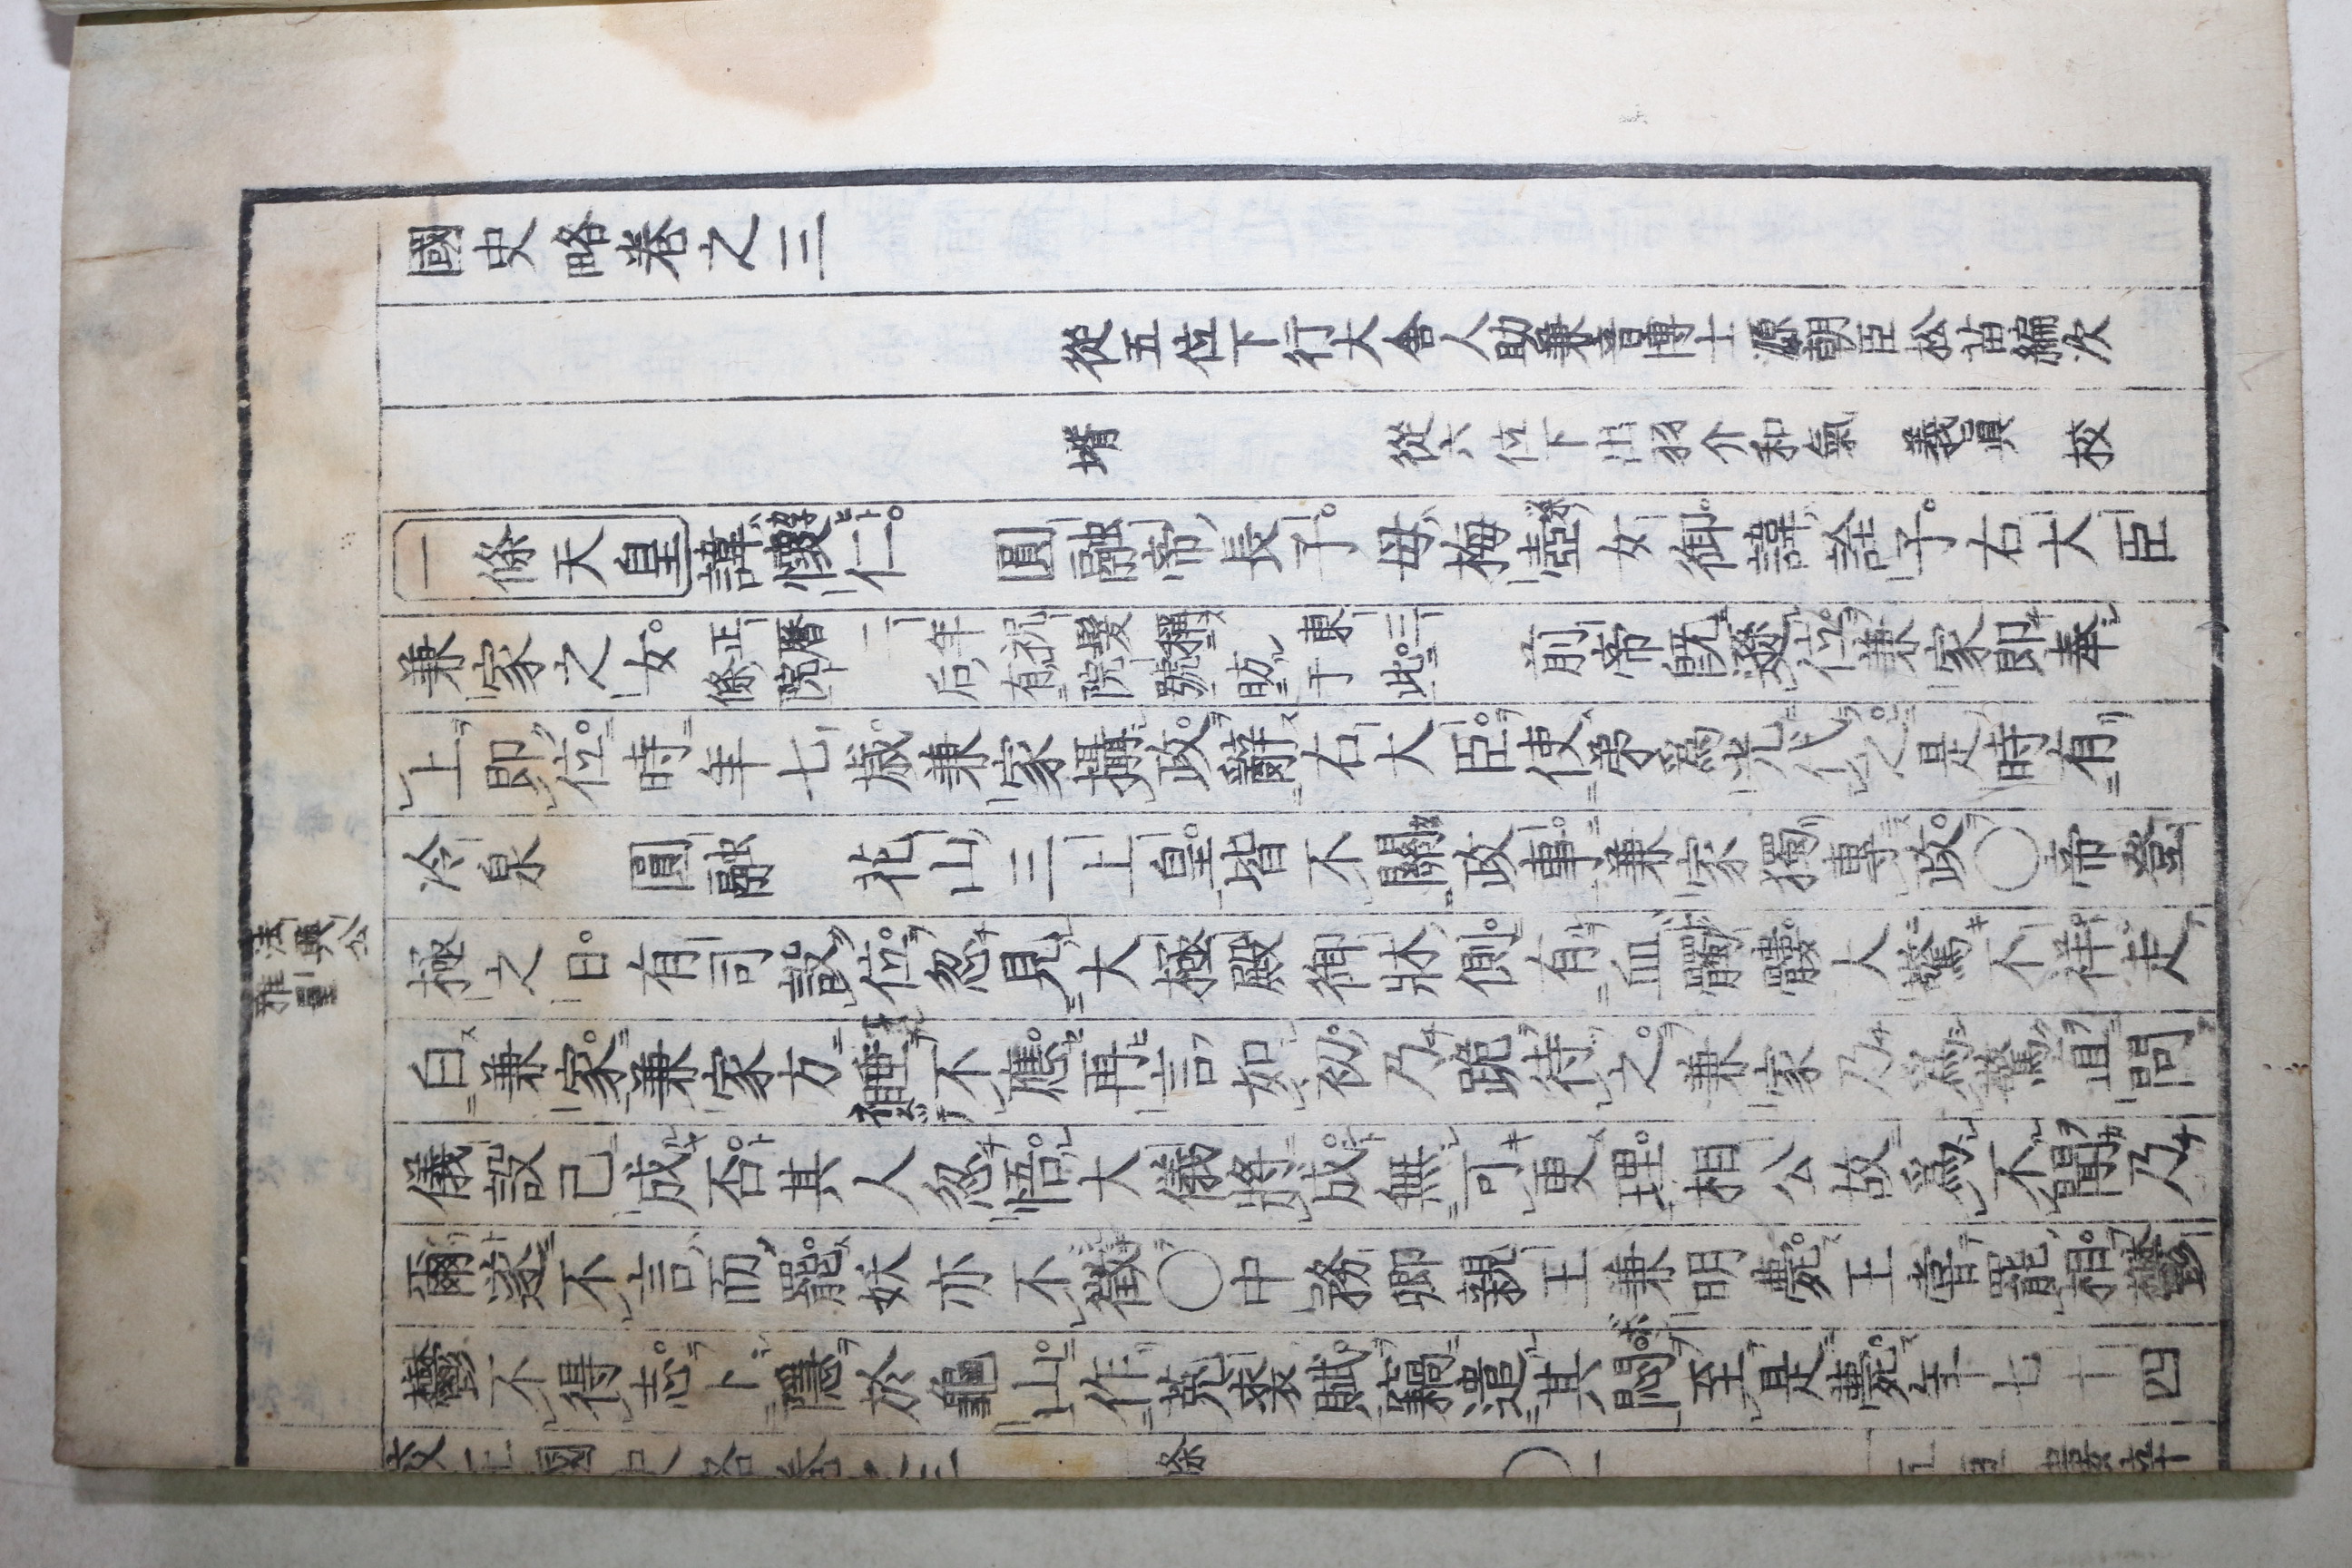 國史略卷之三
從五位下行大舍人助兼音博士源朝臣松苗編次
壻 從六位下出羽介和氣 義眞 校
一條天皇諱懷仁 圓融帝長子母梅壺女御諱詮子右大臣
兼家之女正曆二年祝髮稱東三條院后有院號昉于此 前帝既遜位兼家即奉
上即位時年七歲兼家攝政辭右大臣使弟爲光代之是時有
冷泉 圓融 花山三上皇皆不關政事兼家獨專政○帝登
極之日有司設位忽見大極殿御牀側有血髑髏大驚不祥走
白兼家兼家方睡不應再言如初乃跪待之兼家乃爲驚直問
儀設已成否其人忽悟大儀將成無可更理相公故爲不聞乃
爾遂不言而罷妖亦不徵○中務卿親王兼明薨王嘗罷相鬱
鬱不得志卜隱於龜山作菟裘賦藉遣其悶至是薨年七十四
法興公
雅量